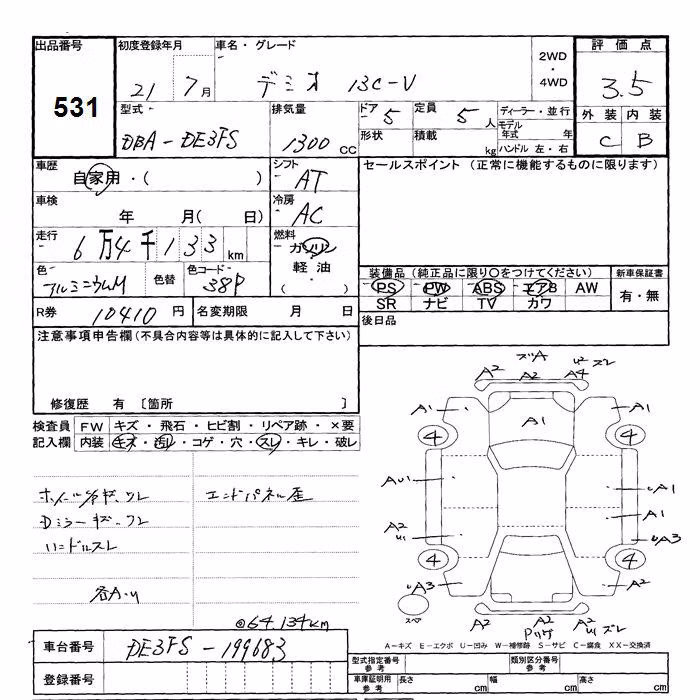 出品番号 初度登録年月 車名・グレード 2WD・4WD 評価点
531 21 7月 デミオ 13C-V 3.5
型式 排気量 ドア 5 定員 5人 ディーラー・並行 外装 内装
DBA-DE3FS 1300cc 形状 積載 kg モデル年式 年 C B
ハンドル 左・右
車歴 自家用・( ) シフト AT セールスポイント (正常に機能するものに限ります)
車検 年 月( 日) 冷房 AC
走行 6万4千133km 燃料 ガソリン
軽油・
色 アルミニウムM 色替 色コード 38P 装備品(純正品に限り○をつけてください) 新車保証書
PS PW ABS エアB AW 有・無
SR ナビ TV カワ
R券 10410円 名変期限 月 日 後日品
注意事項申告欄(不具合内容等は具体的に記入して下さい)
修復歴 有 〔箇所 〕
検査員記入欄 FW キズ・飛石・ヒビ割・リペア跡・×要
内装 キズ・汚レ・コゲ・穴・スレ・キレ・破レ
エンドパネル歪
Dミラーキズ・スレ
ハンドルスレ
各A・U
◎64.134km
ズA
A2 A2 A4 U2 ズレ
A1 A1 A1
4 4
AU1 UA1
A2 U1 A1
UA3
4 4
UA3 A2
スペア A2 A2 A2 U1 ズレ
A-キズ E-エクボ U-凹み W-補修跡 S-サビ C-腐食 XX-交換済
車台番号 DE3FS-199683
型式指定番号 参考 類別区分番号 参考
登録番号 車庫証明用 参考 長さ cm 幅 cm 高さ cm